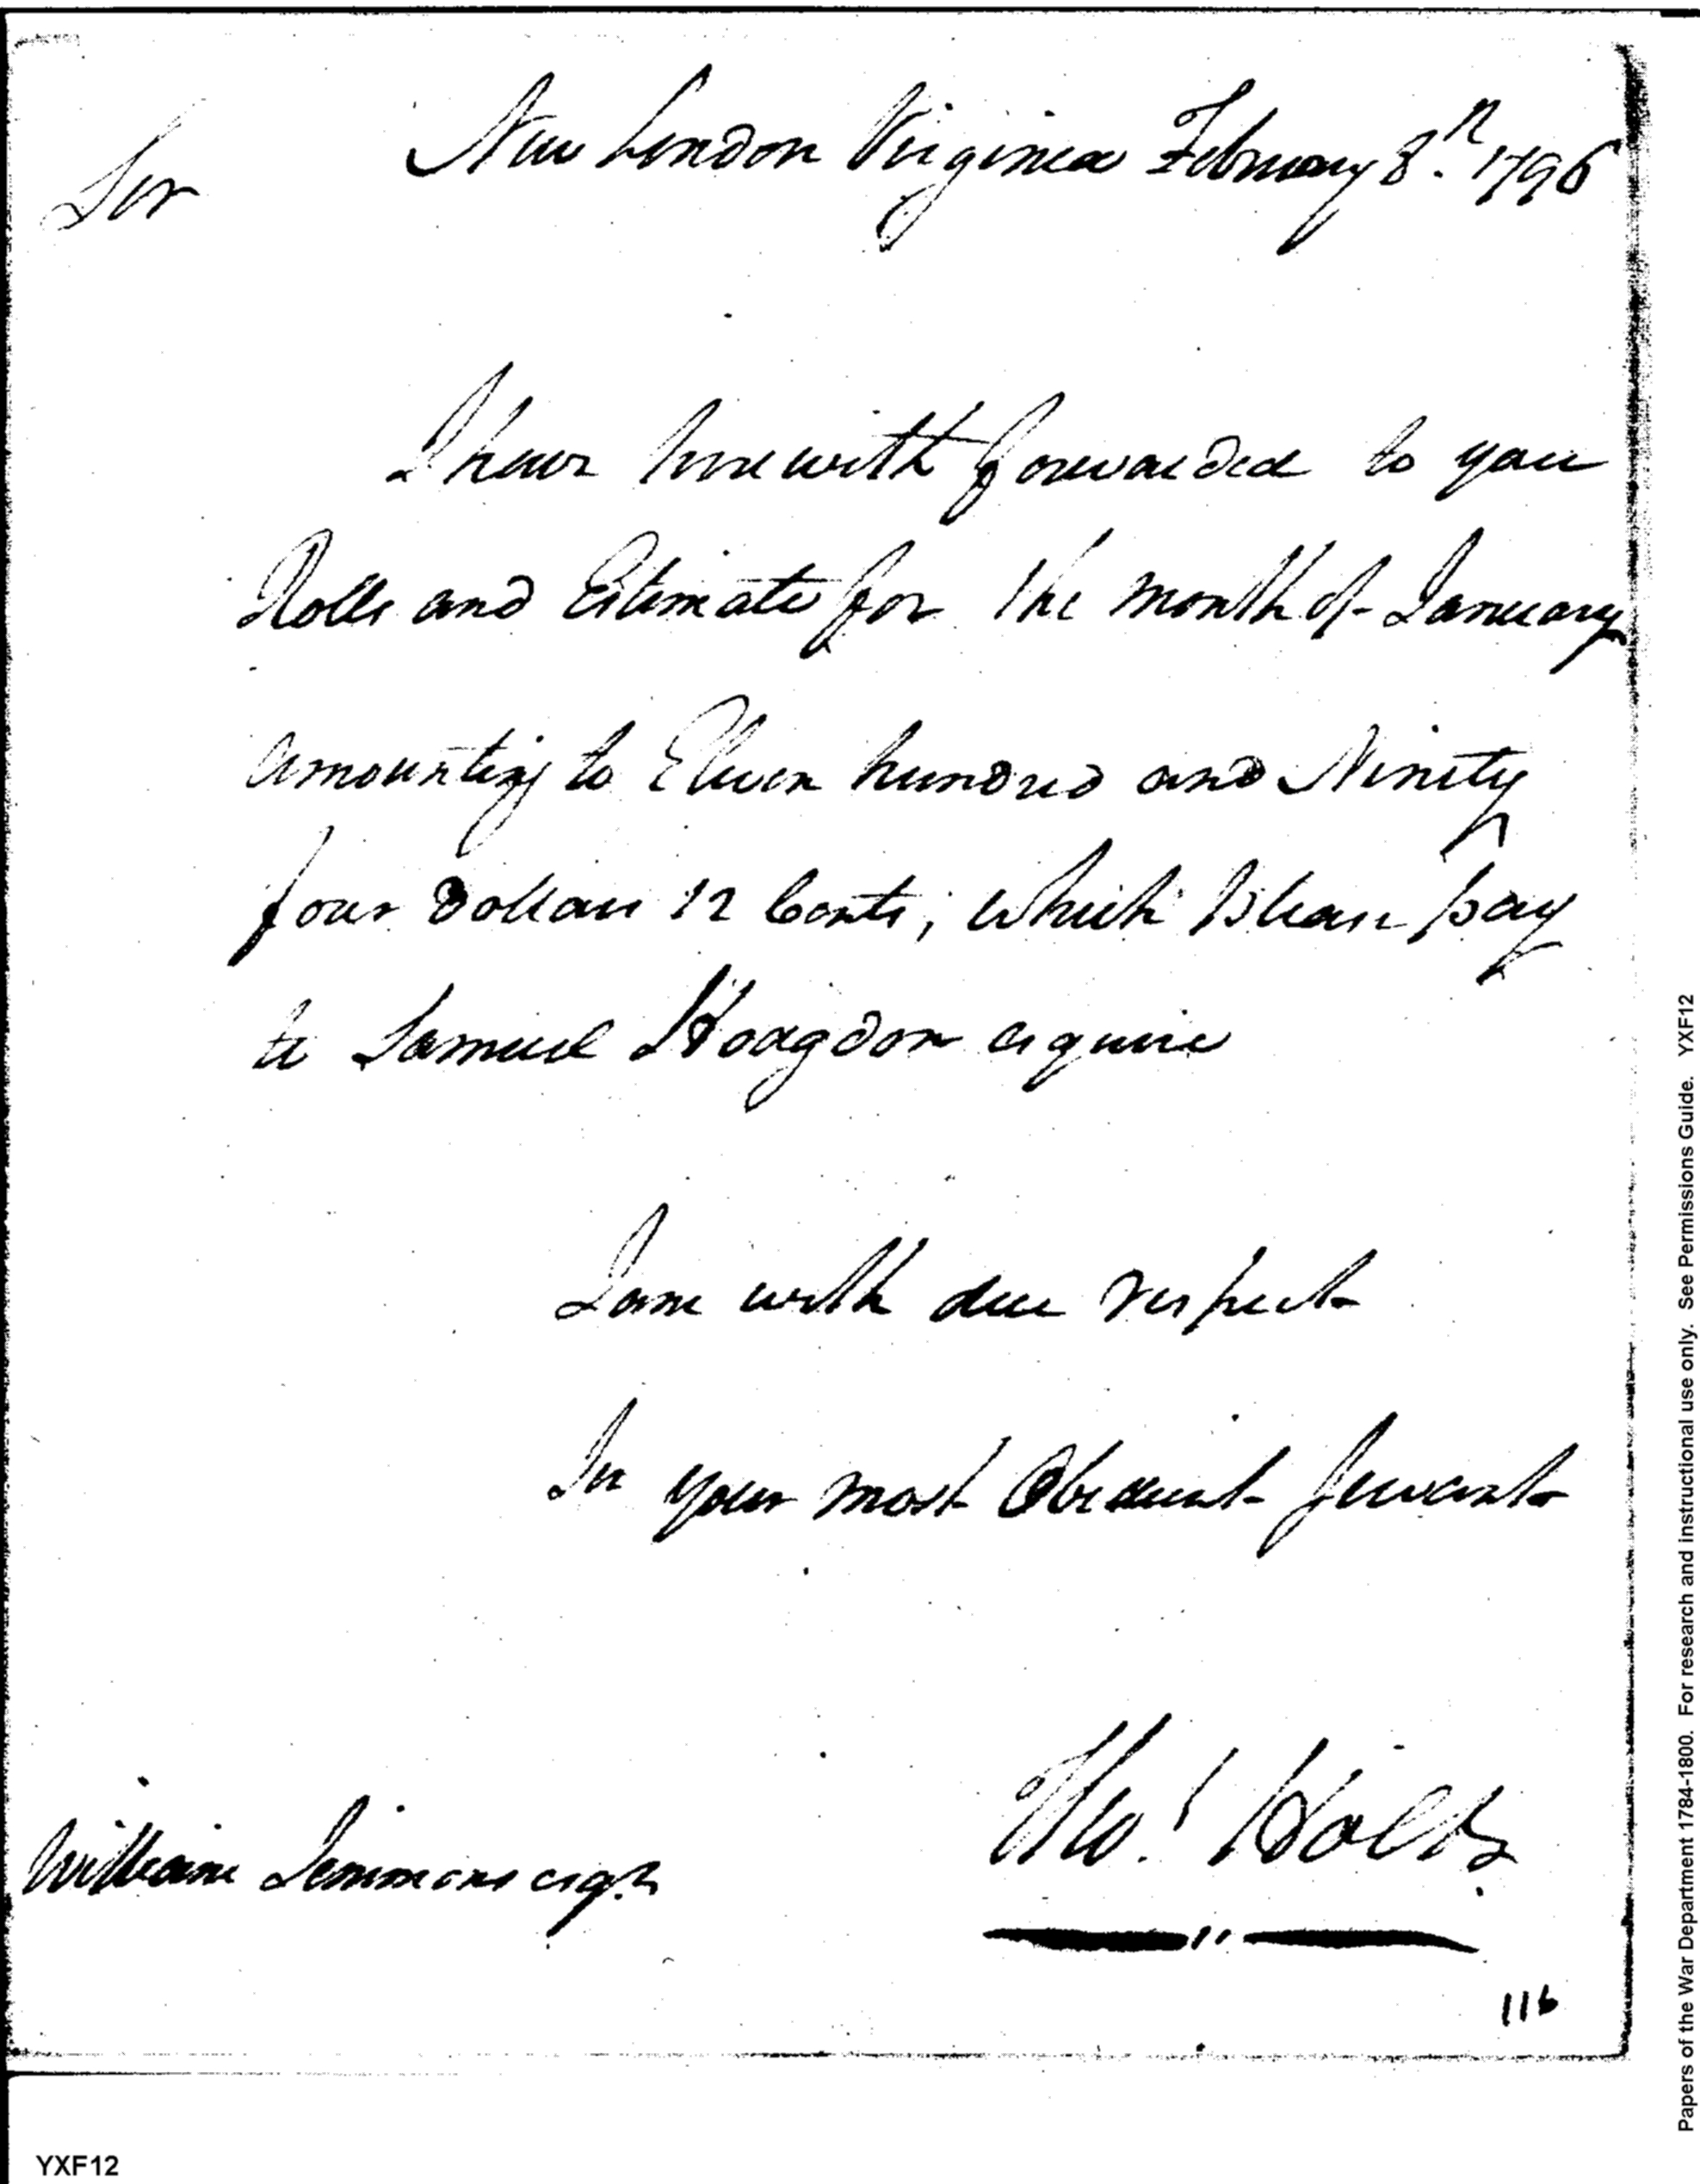 New London Virginia February 8th. 1796
Sir
I have herewith forwarded to you
Rolls and Estimate for the month of January
amounting to Eleven hundred and Ninety
four Dollars 12 Cents, which Please pay
to Samuel Hodgdon esquire
I am with due respect
Sir your most Obedient Servant
Tho.s Holt
William Simmons esqr.
116
YXF12
Papers of the War Department 1784-1800. For research and instructional use only. See Permissions Guide. YXF12